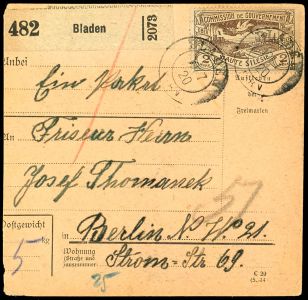 482 Bladen 2073
COMMISSION DE GOUVERNEMENT
HAUTE SILESIE
Anbei
Ein Paket
Aufkleben
Freimarken
An
Friseur Herrn
Josef Thomanek
Postgewicht
5 kg
57
Berlin N.W. 21.
Wohnung
(Straße und
Hausnummer)
Strom-Str. 69.
25
C 20